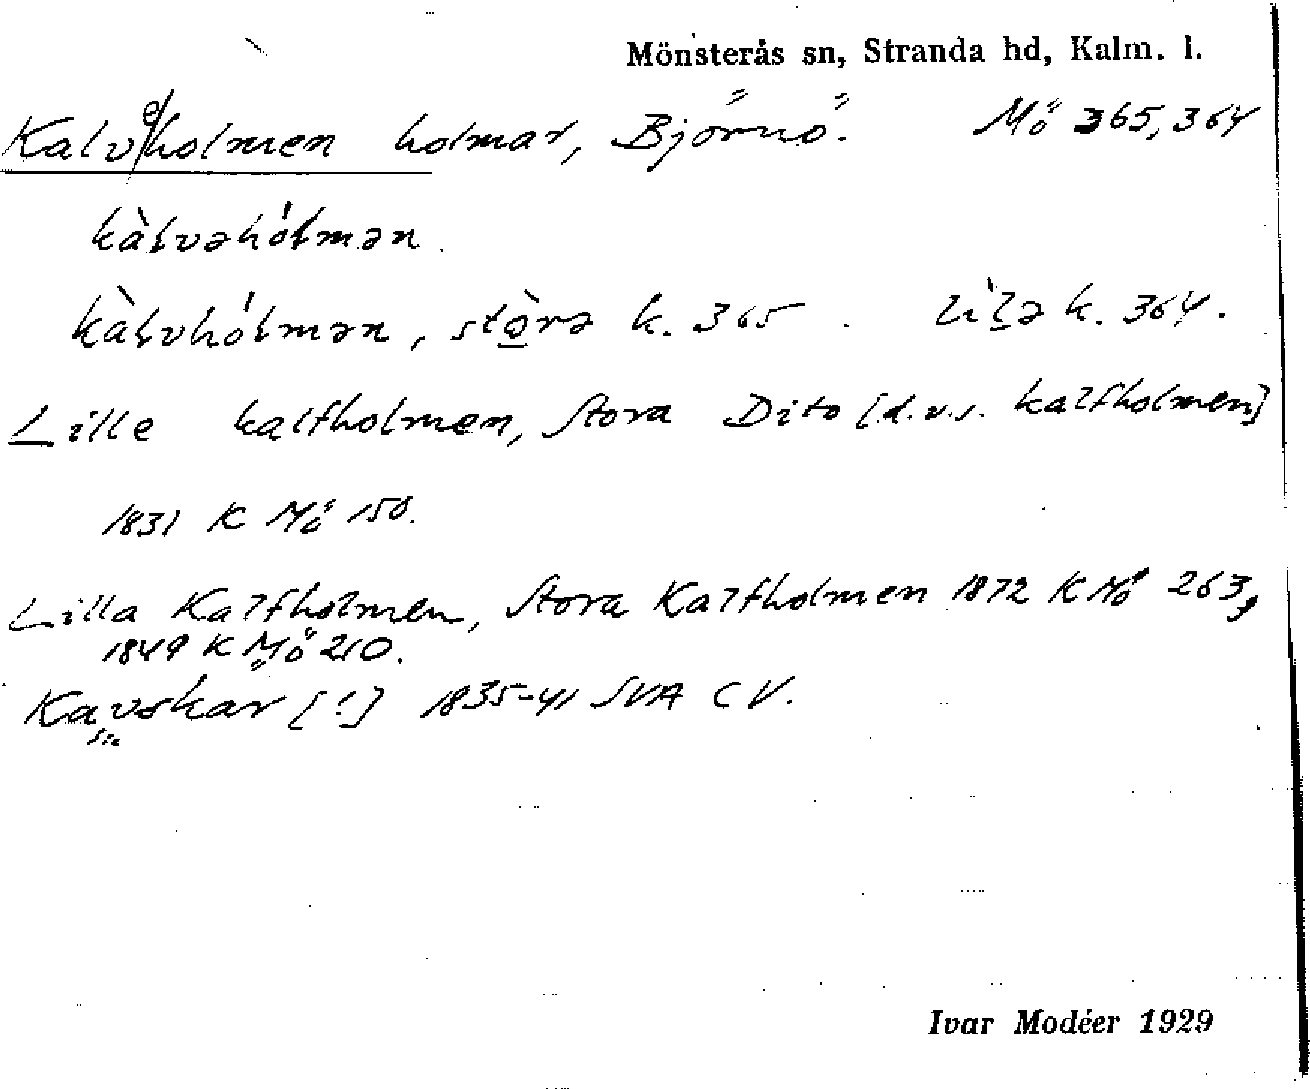 Mönsterås sn, Stranda hd, Kalm. l.
Kalveholmen holmar, Björnö. Mö 365, 364
kàlvəhólmən.
kàlvhólmən, stòrə k. 365. lìlə k. 364.
Lille kalfholmen, Stora Dito [d.v.s. kalfholmen]
1831 K Mö 150.
Lilla Kalfholmen, Stora Kalfholmen 1872 K Mö 263,
1849 K Mö 210.
Kavskär [!] 1835-41 SVA CV.
sic
Ivar Modéer 1929